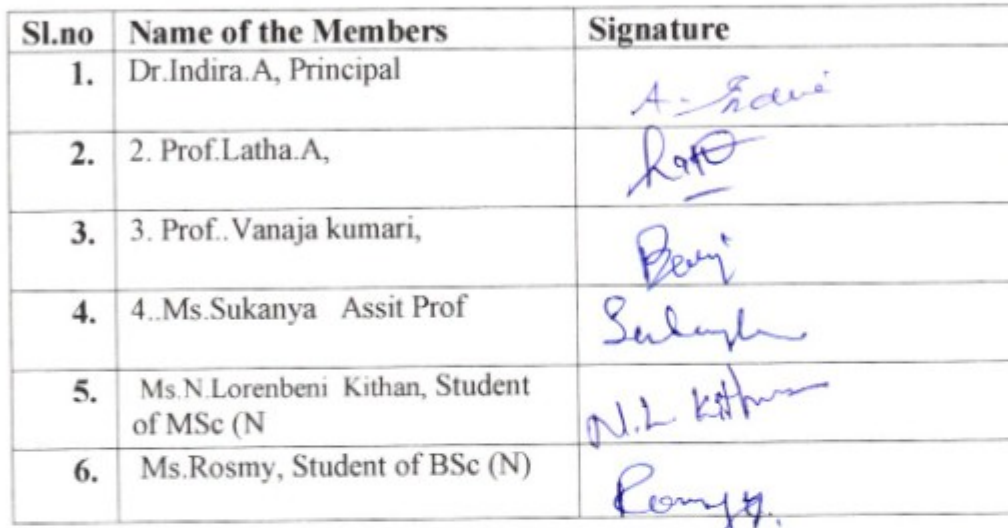 Sl.no Name of the Members Signature
1. Dr.Indira.A, Principal A. Indira
2. 2. Prof.Latha.A, Latha
3. 3. Prof..Vanaja kumari,
4. 4..Ms.Sukanya Assit Prof Sukanya
5. Ms.N.Lorenbeni Kithan, Student N.L. Kithan
of MSc (N
6. Ms.Rosmy, Student of BSc (N) Rosmy